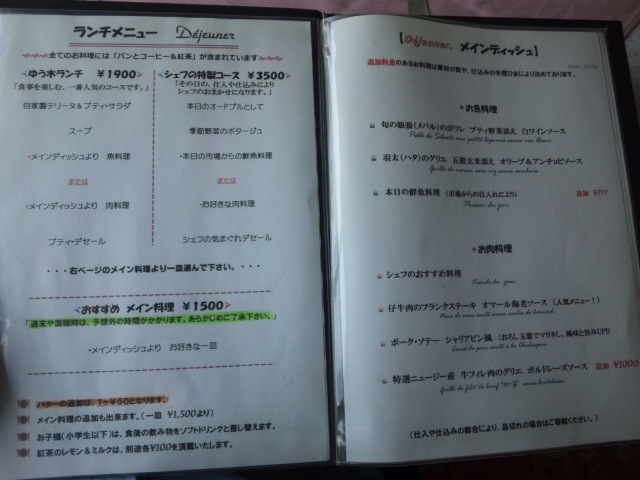 ランチメニュー Déjeuner
全てのお料理には「パンとコーヒー&紅茶」が含まれています
ゆう木ランチ ¥1900
「食事を楽しむ、一番人気のコースです。」
自家製テリーヌ&プティ・サラダ
スープ
・メインディッシュより 魚料理
または
・メインディッシュより 肉料理
プティ・デセール
シェフの特製コース ¥3500
「その日の、仕入や仕込により
シェフのおまかせになります。」
本日のオードブルとして
季節野菜のポタージュ
・本日の市場からの鮮魚料理
または
・お好きな肉料理
シェフの気まぐれデセール
・・・右ページのメイン料理より一皿選んで下さい。・・・
おすすめ メイン料理 ¥1500
「週末や混雑時は、予想外の時間がかかります。あらかじめご了承下さい。」
・メインディッシュより お好きな一皿
バターの追加は、1ヶ¥50となります。
メイン料理の追加も出来ます。(一皿 ¥1,500より)
お子様(小学生以下)は、食後の飲み物をソフトドリンクと差し替えます。
紅茶のレモン&ミルクは、別途各¥100を頂戴いたします。
【Déjeuner. メインディッシュ】
追加料金のあるお料理は素材の質や、仕込みの手間ひまにより決めております。
+お魚料理
旬の眼張(メバル)のポワレ プティ野菜添え 白ワインソース
羽太(ハタ)のグリエ 五穀玄米添え オリーブ&アンチョビソース
本日の鮮魚料理 (市場からの仕入れにより) 追加 ¥???
Poisson du jour
+お肉料理
シェフのおすすめ料理
Viande du jour
仔牛肉のフランクステーキ オマール海老ソース (人気メニュー!)
ポーク・ソテー シャリアピン風 (おろし玉葱でマリネし、風味と旨みUP!)
特選ニュージー産 牛フィレ肉のグリエ ボルドレーズソース 追加 ¥1000
Grillé du filet de bœuf "N・Z" sauce bordelaise
(仕入や仕込みの都合により、品切れの場合はご容赦ください。)